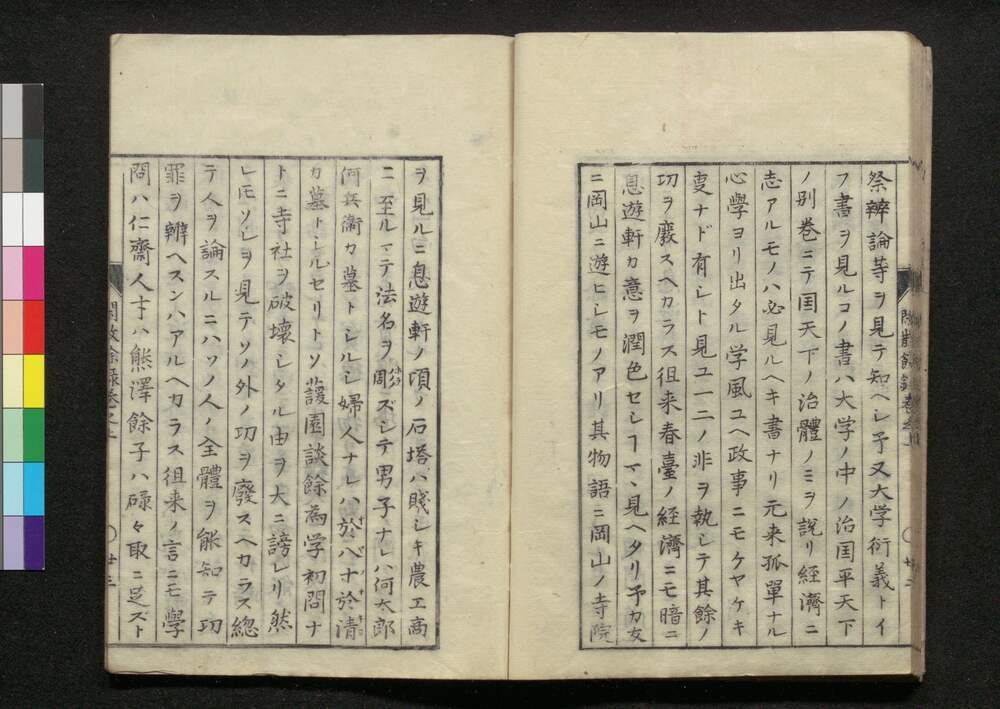 祭辨論等ヲ見テ知ヘシ予又大学衍義トイ
フ書ヲ見ルコノ書ハ大学ノ中ノ治国平天下
ノ別巻ニテ国天下ノ治體ノミヲ説リ経濟ニ
志アルモノハ必見ルヘキ書ナリ元来孤單ナル
心学ヨリ出タル学風ユヘ政事ニモケヤケキ
叓ナド有シト見ユ一二ノ非ヲ執シテ其餘ノ
功ヲ廢スヘカラス徂来春臺ノ経濟ニモ暗ニ
息遊軒カ意ヲ潤色セシヿマヽ見ヘタリ予カ友
ニ岡山ニ遊ヒシモノアリ其物語ニ岡山ノ寺院
ヲ見ルニ息遊軒ノ頃ノ石塔ハ賤シキ農工商
ニ至ルマテ法名ヲ用ズシテ男子ナレハ何太郎
何兵衛カ墓トシルシ婦人ナレハ於八十於清
カ墓トシルセリトソ蘐園談餘為学初問ナ
トニ寺社ヲ破壊シタル由ヲ大ニ謗レリ然
レ𪜈ソレヲ見テソノ外ノ功ヲ廢スヘカラス総
テ人ヲ論スルニハソノ人ノ全體ヲ能知テ功
罪ヲ辨ヘスンハアルヘカラス徂来ノ言ニモ學
問ハ仁齋人才ハ熊澤餘子ハ碌々取ニ足ズト